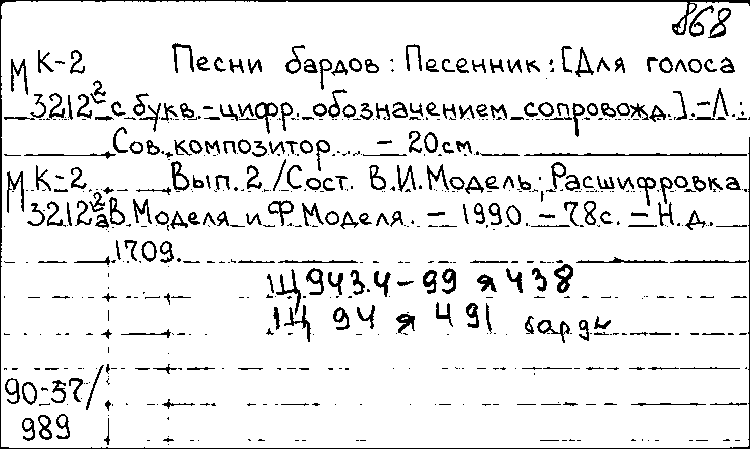 868
М К-2 Песни бардов : Песенник : [Для голоса
3212² с букв.-цифр. обозначением сопровожд.]. - Л. :
Сов. композитор - 20см.
М К-2 Вып. 2 / Сост. В.И. Модель ; Расшифровка
3212²а В. Моделя и Ф. Моделя. - 1990. - 78с. - Н.д.
1709.
Щ943.4-99 я 438
Щ 94 я 491 барды
90-57/
989